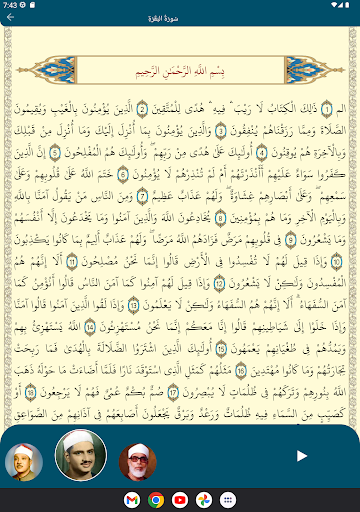 7:43
سُورَةُ البَقَرَةِ
بِسْمِ اللَّهِ الرَّحْمَٰنِ الرَّحِيمِ
الم ١ ذَٰلِكَ الْكِتَابُ لَا رَيْبَ ۛ فِيهِ ۛ هُدًى لِلْمُتَّقِينَ ٢ الَّذِينَ يُؤْمِنُونَ بِالْغَيْبِ وَيُقِيمُونَ
الصَّلَاةَ وَمِمَّا رَزَقْنَاهُمْ يُنْفِقُونَ ٣ وَالَّذِينَ يُؤْمِنُونَ بِمَا أُنْزِلَ إِلَيْكَ وَمَا أُنْزِلَ مِنْ قَبْلِكَ
وَبِالْآخِرَةِ هُمْ يُوقِنُونَ ٤ أُولَٰئِكَ عَلَىٰ هُدًى مِنْ رَبِّهِمْ ۖ وَأُولَٰئِكَ هُمُ الْمُفْلِحُونَ ٥ إِنَّ الَّذِينَ
كَفَرُوا سَوَاءٌ عَلَيْهِمْ أَأَنْذَرْتَهُمْ أَمْ لَمْ تُنْذِرْهُمْ لَا يُؤْمِنُونَ ٦ خَتَمَ اللَّهُ عَلَىٰ قُلُوبِهِمْ وَعَلَىٰ
سَمْعِهِمْ ۖ وَعَلَىٰ أَبْصَارِهِمْ غِشَاوَةٌ ۖ وَلَهُمْ عَذَابٌ عَظِيمٌ ٧ وَمِنَ النَّاسِ مَنْ يَقُولُ آمَنَّا بِاللَّهِ
وَبِالْيَوْمِ الْآخِرِ وَمَا هُمْ بِمُؤْمِنِينَ ٨ يُخَادِعُونَ اللَّهَ وَالَّذِينَ آمَنُوا وَمَا يَخْدَعُونَ إِلَّا أَنْفُسَهُمْ
وَمَا يَشْعُرُونَ ٩ فِي قُلُوبِهِمْ مَرَضٌ فَزَادَهُمُ اللَّهُ مَرَضًا ۖ وَلَهُمْ عَذَابٌ أَلِيمٌ بِمَا كَانُوا يَكْذِبُونَ
١٠ وَإِذَا قِيلَ لَهُمْ لَا تُفْسِدُوا فِي الْأَرْضِ قَالُوا إِنَّمَا نَحْنُ مُصْلِحُونَ ١١ أَلَا إِنَّهُمْ هُمُ
الْمُفْسِدُونَ وَلَٰكِنْ لَا يَشْعُرُونَ ١٢ وَإِذَا قِيلَ لَهُمْ آمِنُوا كَمَا آمَنَ النَّاسُ قَالُوا أَنُؤْمِنُ كَمَا
آمَنَ السُّفَهَاءُ ۗ أَلَا إِنَّهُمْ هُمُ السُّفَهَاءُ وَلَٰكِنْ لَا يَعْلَمُونَ ١٣ وَإِذَا لَقُوا الَّذِينَ آمَنُوا قَالُوا آمَنَّا
وَإِذَا خَلَوْا إِلَىٰ شَيَاطِينِهِمْ قَالُوا إِنَّا مَعَكُمْ إِنَّمَا نَحْنُ مُسْتَهْزِئُونَ ١٤ اللَّهُ يَسْتَهْزِئُ بِهِمْ
وَيَمُدُّهُمْ فِي طُغْيَانِهِمْ يَعْمَهُونَ ١٥ أُولَٰئِكَ الَّذِينَ اشْتَرَوُا الضَّلَالَةَ بِالْهُدَىٰ فَمَا رَبِحَتْ
تِجَارَتُهُمْ وَمَا كَانُوا مُهْتَدِينَ ١٦ مَثَلُهُمْ كَمَثَلِ الَّذِي اسْتَوْقَدَ نَارًا فَلَمَّا أَضَاءَتْ مَا حَوْلَهُ ذَهَبَ
اللَّهُ بِنُورِهِمْ وَتَرَكَهُمْ فِي ظُلُمَاتٍ لَا يُبْصِرُونَ ١٧ صُمٌّ بُكْمٌ عُمْيٌ فَهُمْ لَا يَرْجِعُونَ ١٨ أَوْ
كَصَيِّبٍ مِنَ السَّمَاءِ فِيهِ ظُلُمَاتٌ وَرَعْدٌ وَبَرْقٌ يَجْعَلُونَ أَصَابِعَهُمْ فِي آذَانِهِمْ مِنَ الصَّوَاعِقِ